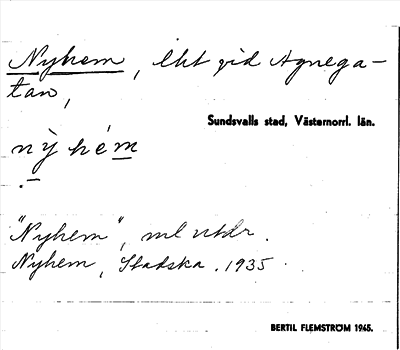 Nyhem, lht vid Agnega-
tan,
Sundsvalls stad, Västernorrl. län.
nỳ hém
"Nyhem", ml utdr.
Nyhem, Stadska. 1935.
BERTIL FLEMSTRÖM 1945.